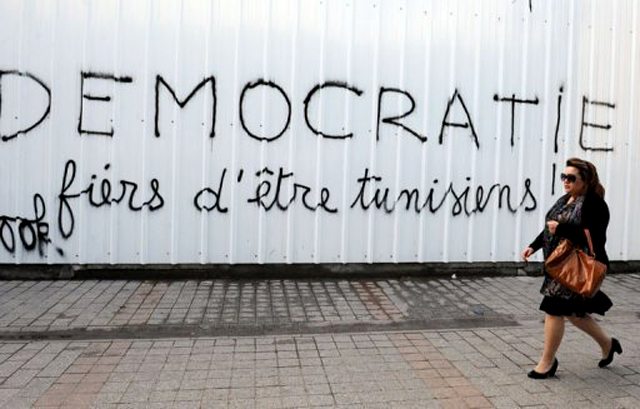 DEMOCRATIE
fiérs d'être tunisiens !
ook.